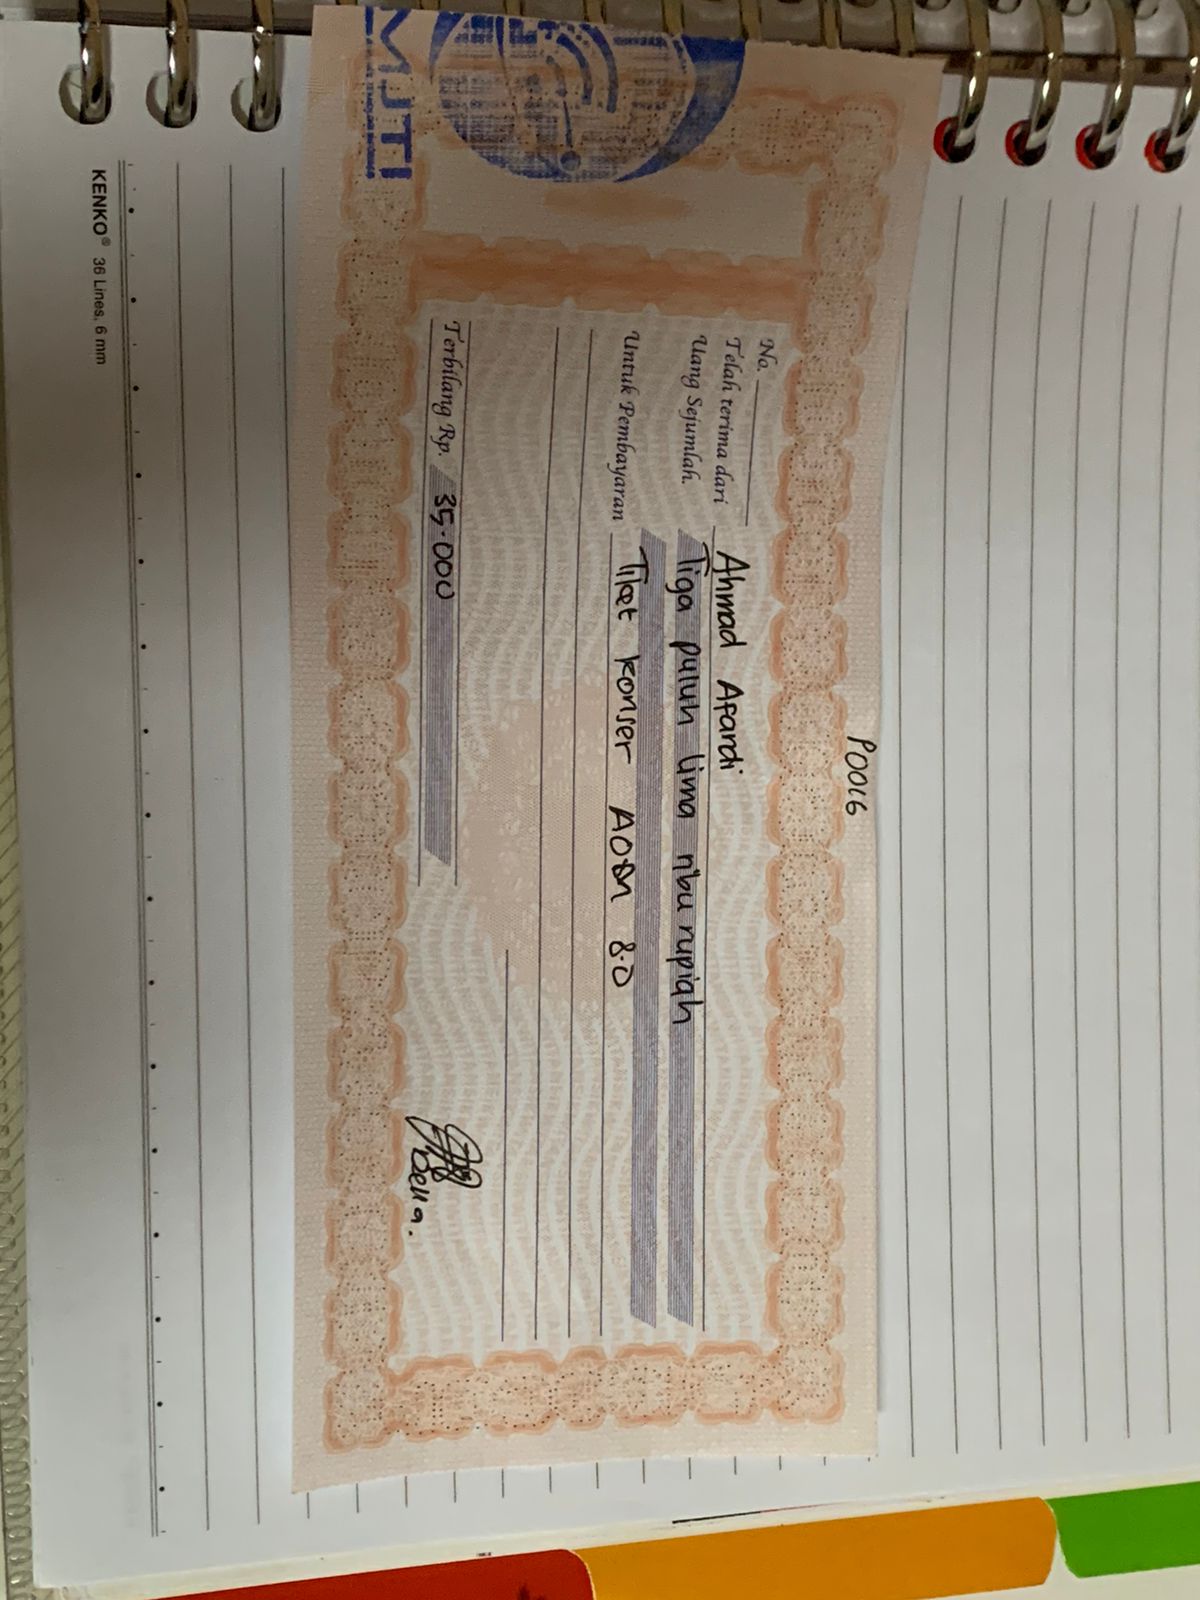 P0016
No.
Telah terima dari Ahmad Afandi
Uang Sejumlah. Tiga puluh lima ribu rupiah
Untuk Pembayaran Tiket konser 8.0
Terbilang Rp. 35.000
Della.
MJTI
KENKO® 36 Lines, 6 mm